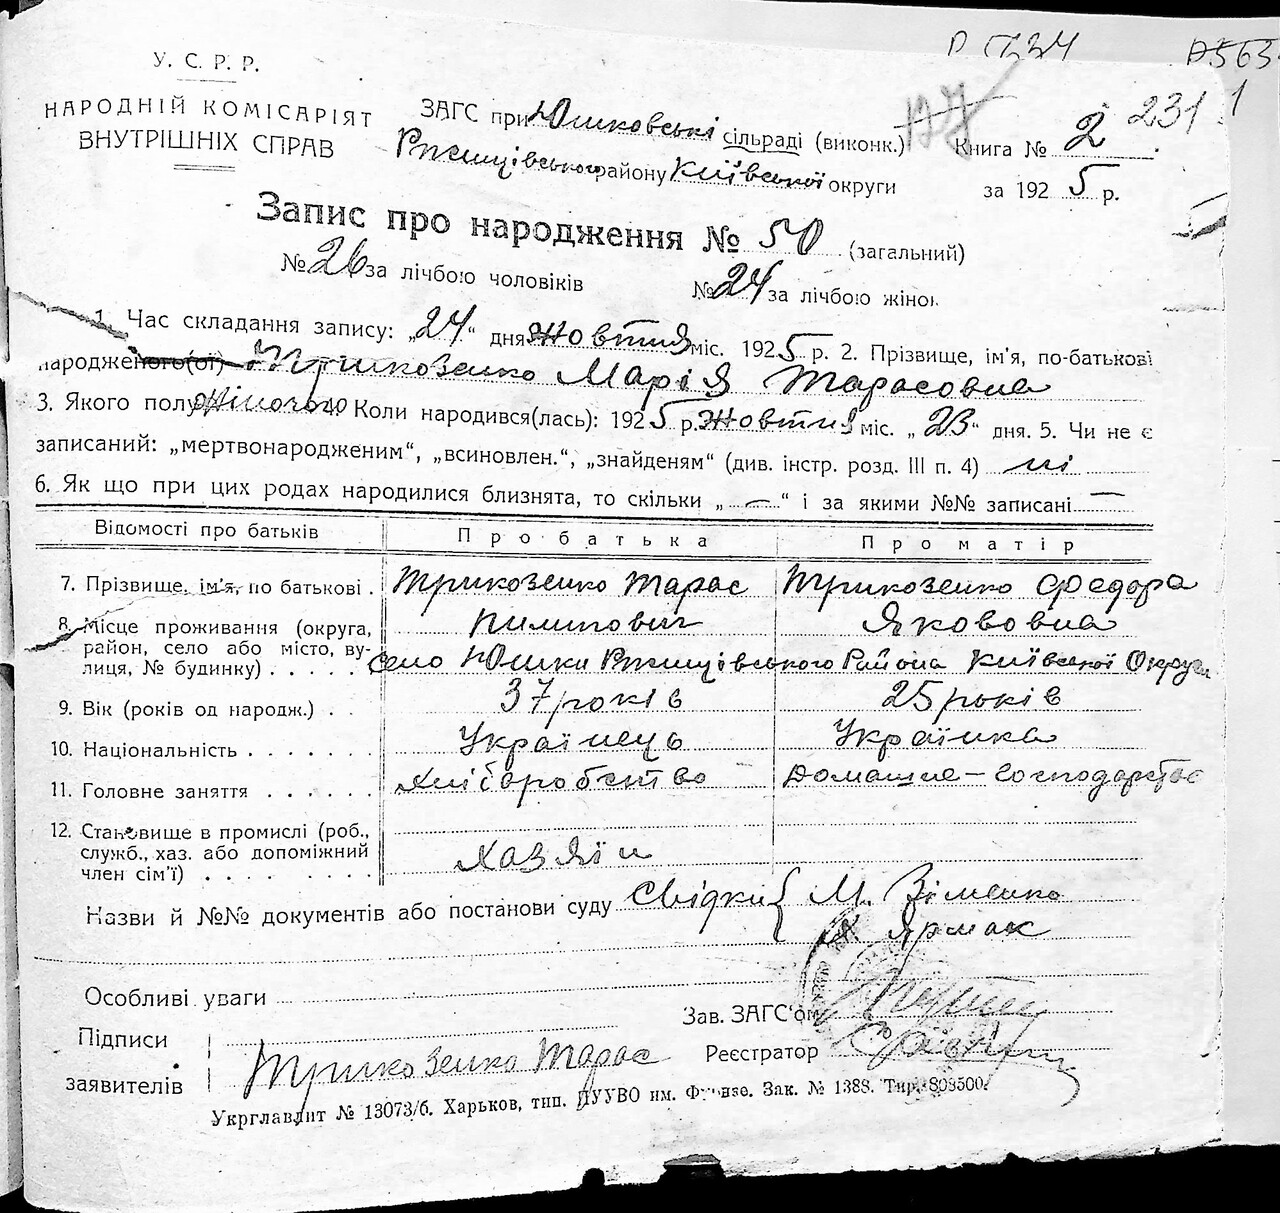 У. С. Р. Р.
НАРОДНІЙ КОМІСАРІЯТ
ВНУТРІШНІХ СПРАВ
ЗАГС при Юшковські сільраді (виконк.)
Ржищівського району Київської округи
Книга № 2
231
за 1925 р.
Запис про народження № 50 (загальний)
№ 26 за лічбою чоловіків № 24 за лічбою жінок
1. Час складання запису: „24“ дня жовтня міс. 1925 р. 2. Прізвище, ім'я, по-батькові
народженого(ої) Трикозенко Марія Тарасовна
3. Якого полу жіночого 4. Коли народився(лась): 1925 р. жовтня міс. „23“ дня. 5. Чи не є
записаний: „мертвонародженим“, „всиновлен.“, „знайденям“ (див. інстр. розд. III п. 4) ні
6. Як що при цих родах народилися близнята, то скільки „—“ і за якими №№ записані —
Відомості про батьків Про батька Про матір
7. Прізвище, ім'я, по батькові . Трикозенко Тарас Пилипович Трикозенко Федора Якововна
8. Місце проживання (округа,
район, село або місто, ву-
лиця, № будинку) . . . . . село Юшки Ржищівського Района Київської Округи
9. Вік (років од народж.) . . 37 років 25 років
10. Національність . . . . . . . Українець Українка
11. Головне заняття . . . . . . Хліборобство Домашнє-господарство
12. Становище в промислі (роб.,
служб., хаз. або допоміжний
член сім'ї) . . . . . . . Хазяїн
Назви й №№ документів або постанови суду Свідки { М. Зіменко
Ярмак
Особливі уваги
Зав. ЗАГС'ом
Підписи
заявителів Трикозенко Тарас
Реєстратор
Укрглавліт № 13073/б. Харьков, тип. ПУУВО им. Фрунзе. Зак. № 1388. Тир. 808500.